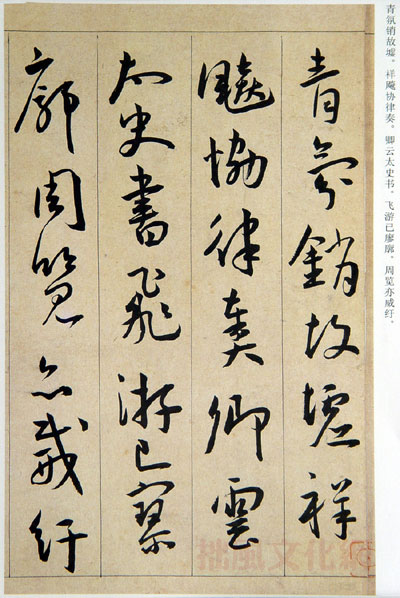 青氛销故墟。祥飚协律奏。卿云太史书。飞游已廖廓。周览亦威纡。
青氛銷故墟祥
飈協律奏卿雲
太史書飛游已寥
廓周覽亦威紆
拙風文化網